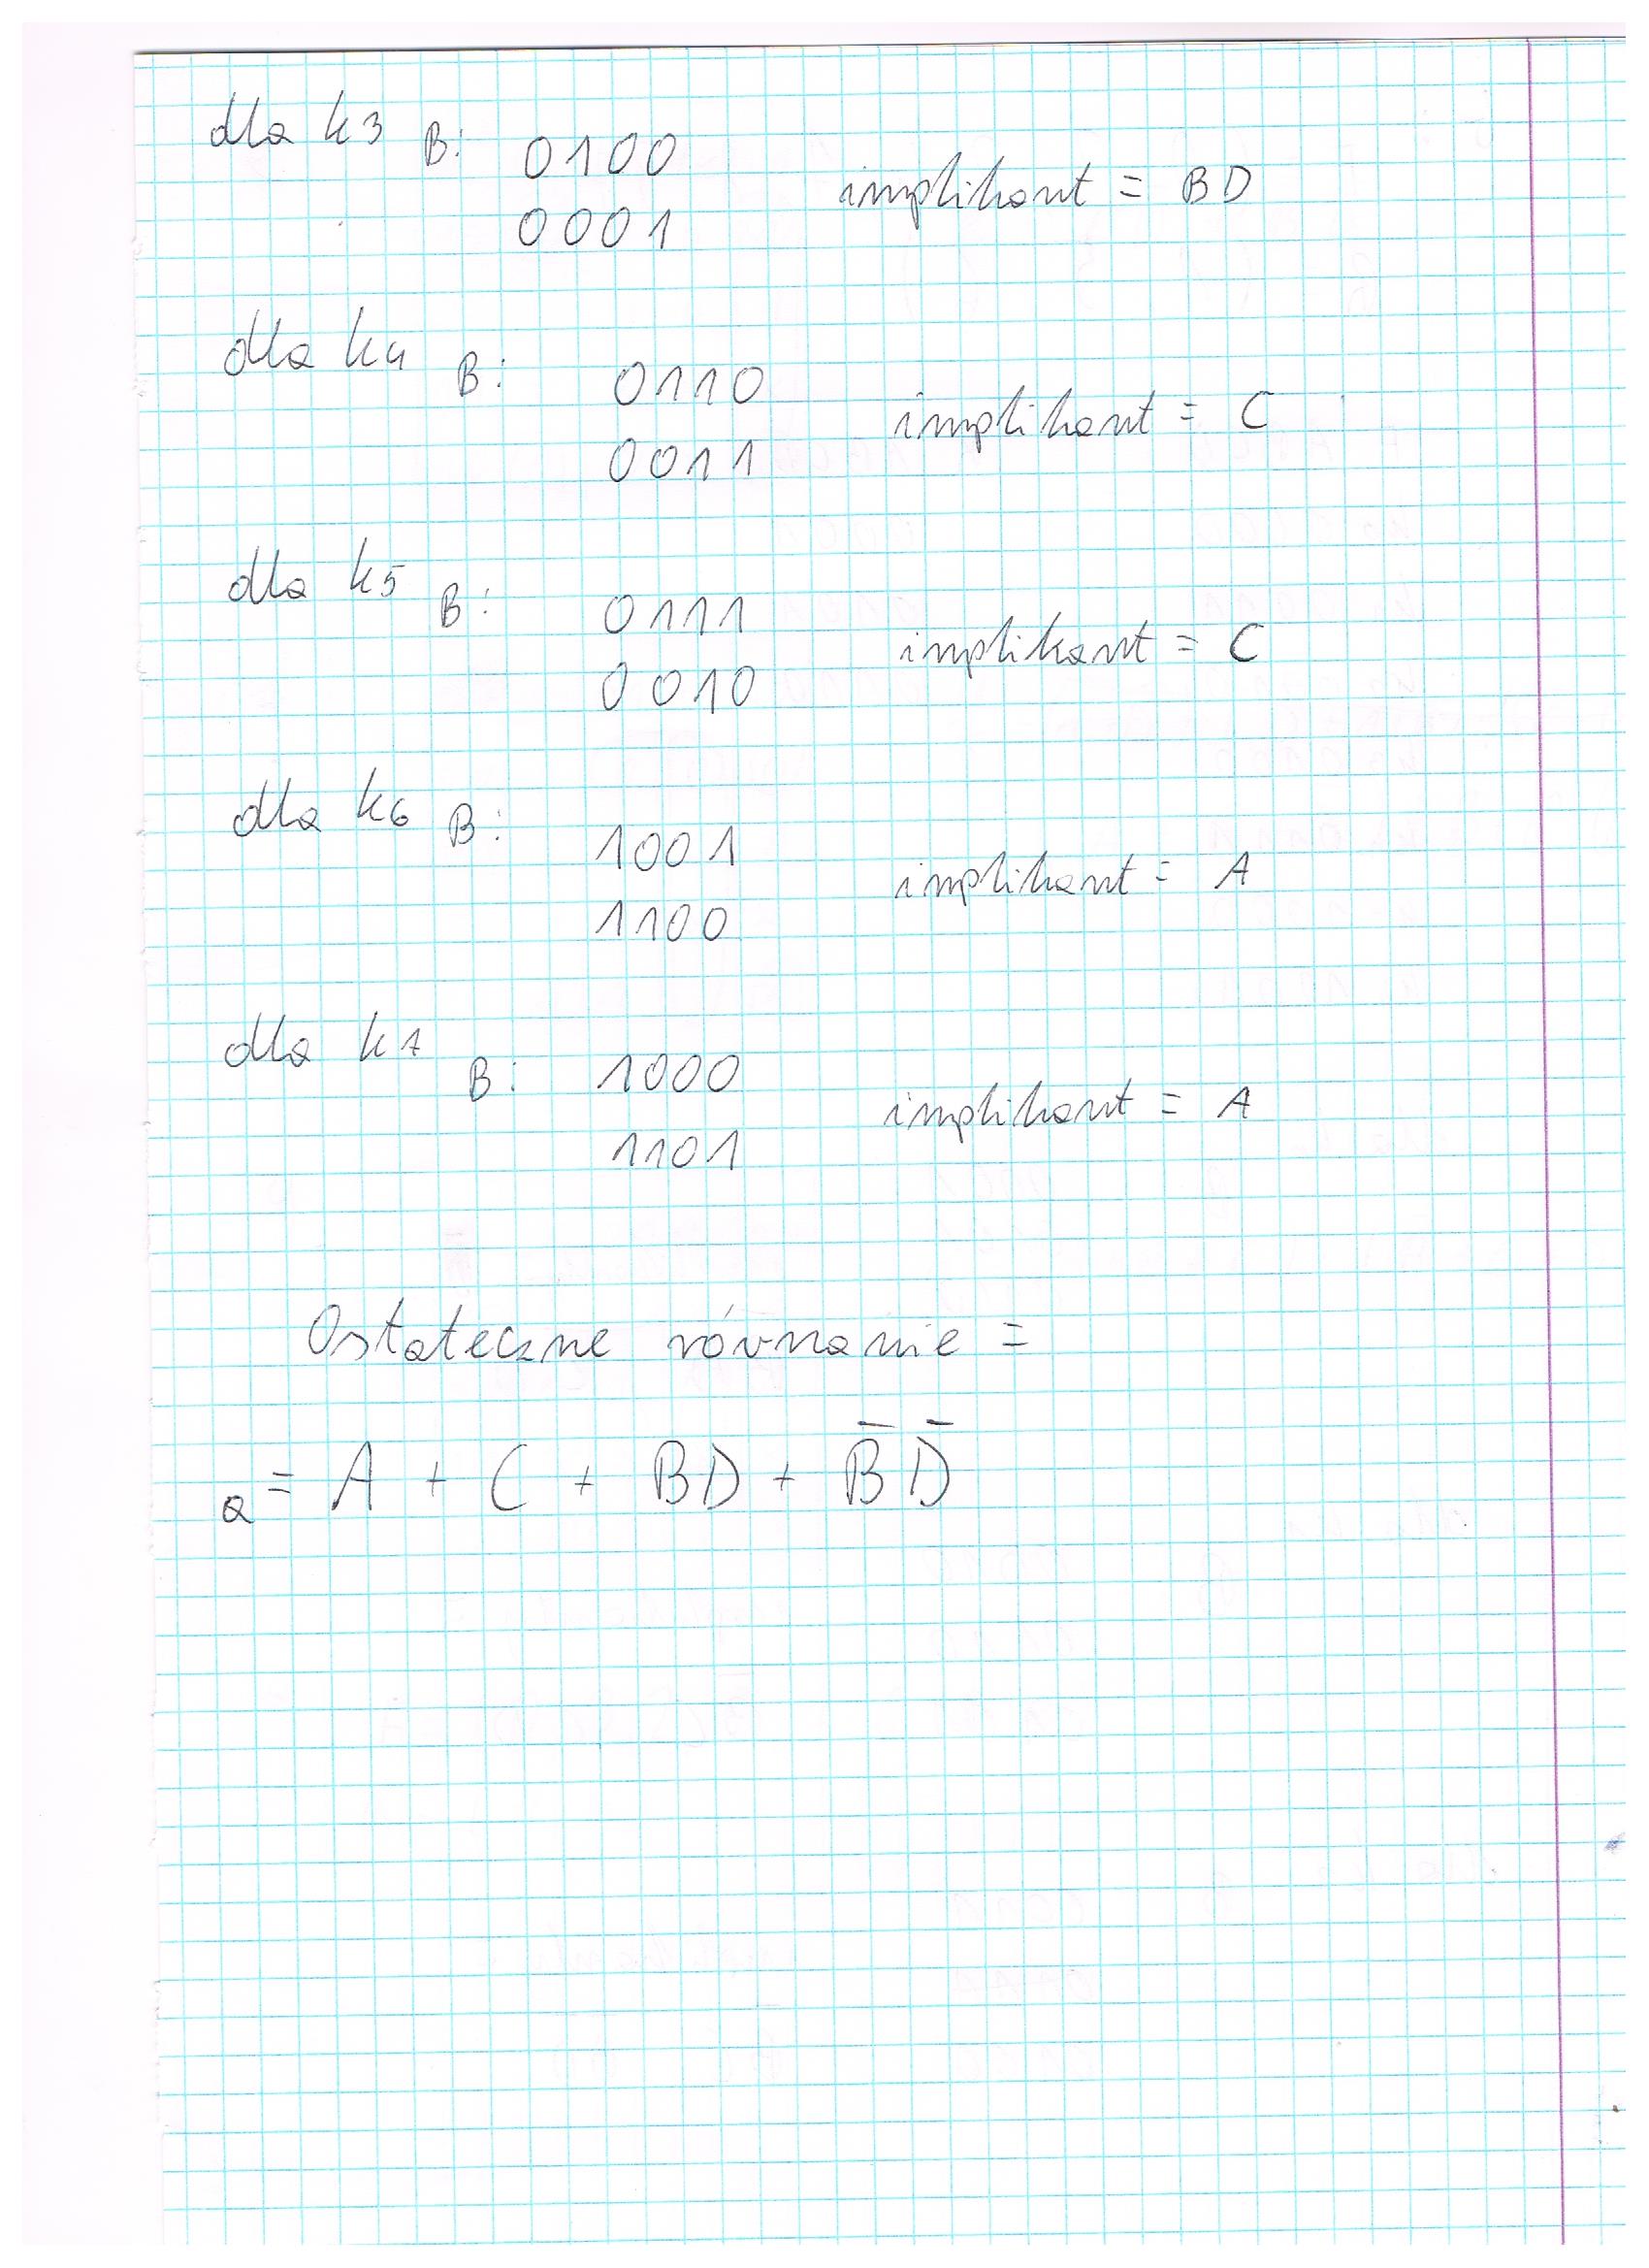 dla k3 B: 0100
0001 implikant = BD
dla k4 B: 0110
0011 implikant = C
dla k5 B: 0111
0010 implikant = C
dla k6 B: 1001
1100 implikant = A
dla k7 B: 1000
1101 implikant = A
Ostateczne równanie =
a = A + C + BD + B̅ D̅